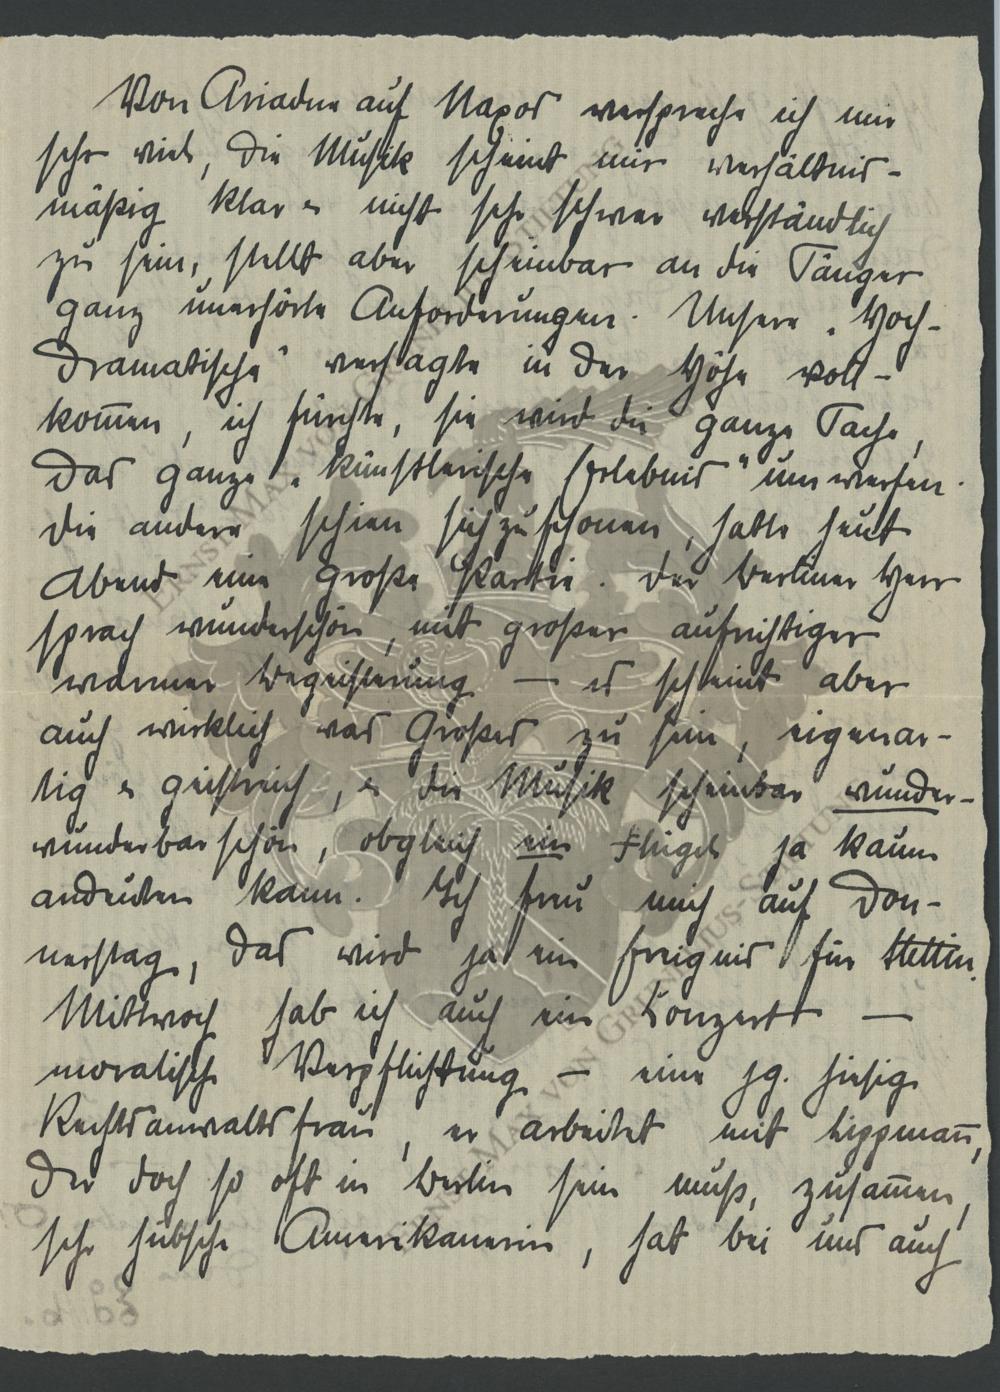 Von Ariadne auf Naxos verspreche ich mir
sehr viel, die Musik scheint mir verhältnis-
mäßig klar u nicht sehr schwer verständlich
zu sein, stellt aber scheinbar an die Sänger
ganz unerhörte Anforderungen. Unsere „Hoch-
dramatische" versagte in der Höhe voll-
kom̅en, ich fürchte, sie wird die ganze Sache,
das ganze „künstlerische Erlebnis" umwerfen.
Die andere schien sich zu schonen, hatte heut
Abend eine große Partie. Der Berliner Herr
sprach wunderschön, mit großer aufrichtiger
warmer Begeisterung — es scheint aber
auch wirklich was Großes zu sein, eigenar-
tig u geistreich, u die Musik scheinbar wunder-
wunderbar schön, obgleich ein Flügel ja kaum
andeuten kann. Ich freu mich auf Don-
nerstag, das wird ja ein Ereignis für Stettin.
Mittwoch hab ich auch ein Konzert —
moralische Verpflichtung — eine jg. hiesige
Rechtsanwaltsfrau, er arbeitet mit Lippman̅,
der doch so oft in Berlin sein muß, zusam̅en,
sehr hübsche Amerikanerin, hat bei uns auch
ERNST-MAX VON GRUNELIUS-STIFTUNG
ERNST-MAX VON GRUNELIUS-STIFTUNG